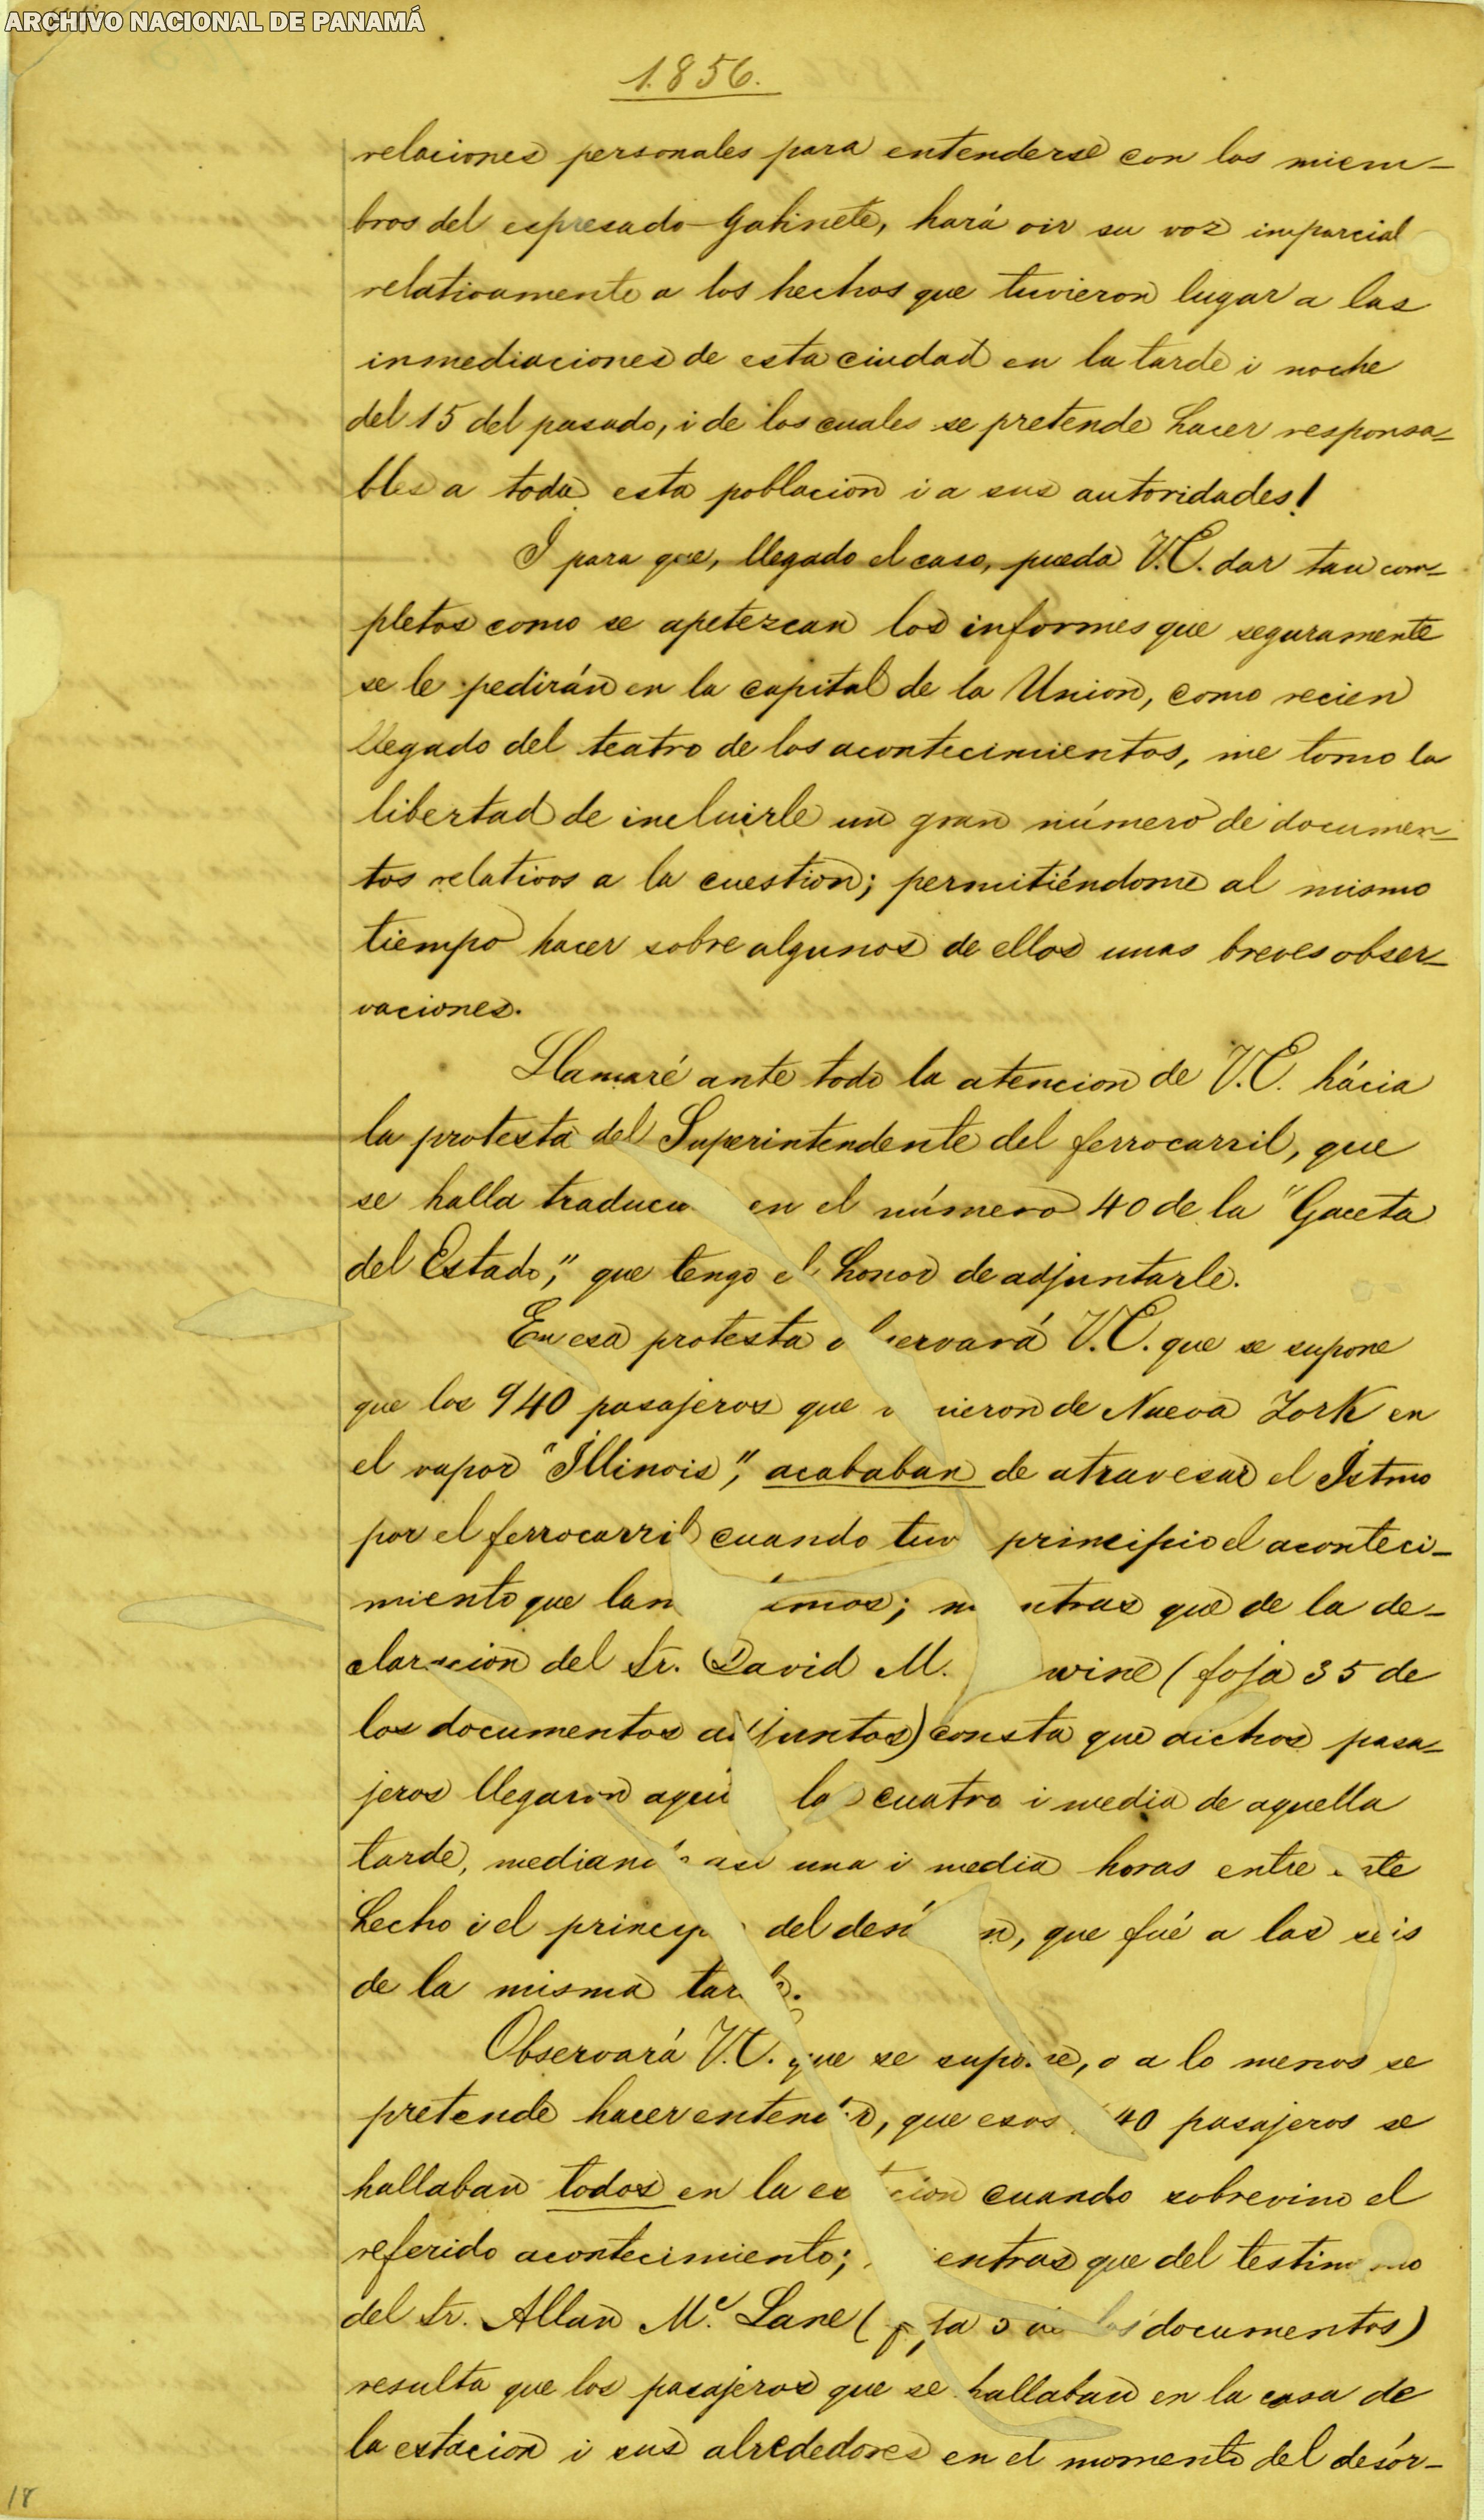 ARCHIVO NACIONAL DE PANAMÁ
1.856.
relaciones personales para entenderse con los miem-
bros del espresado Gabinete, hará oir su voz imparcial
relativamente a los hechos que tuvieron lugar a las
inmediaciones de esta ciudad en la tarde i noche
del 15 del pasado, i de los cuales se pretende hacer responsa-
bles a toda esta poblacion i a sus autoridades!
I para que, llegado el caso, pueda V.E. dar tan com-
pletos como se apetezcan los informes que seguramente
se le pedirán en la capital de la Union, como recien
llegado del teatro de los acontecimientos, me tomo la
libertad de incluirle un gran número de documen-
tos relativos a la cuestion; permitiéndome al mismo
tiempo hacer sobre algunos de ellos unas breves obser-
vaciones.
Llamaré ante todo la atencion de V.E. hácia
la protesta del Superintendente del ferrocarril, que
se halla en el número 40 de la "Gaceta
del Estado," que tengo el honor de adjuntarle.
En esa protesta observará V.E. que se supone
que los 940 pasajeros que de Nueva York en
el vapor "Illinois", acababan de atravesar el Istmo
por el ferrocarril cuando tuvo principio el aconteci-
miento que mientras que de la de-
claracion del Sr. David M. (foja 35 de
los documentos adjuntos) consta que dichos pasa-
jeros llegaron aqui las cuatro i media de aquella
tarde, mediando asi una i media horas entre este
hecho i el principio del desórden, que fué a las seis
de la misma tarde.
Observará V.E. que se supone, o a lo menos se
pretende hacer entender, que esos 940 pasajeros se
hallaban todos en la estacion cuando sobrevino el
referido acontecimiento; mientras que del testimonio
del Sr. Allan Mc. Lane (foja documentos)
resulta que los pasajeros que se hallaban en la casa de
la estacion i sus alrededores en el momento del desór-
18